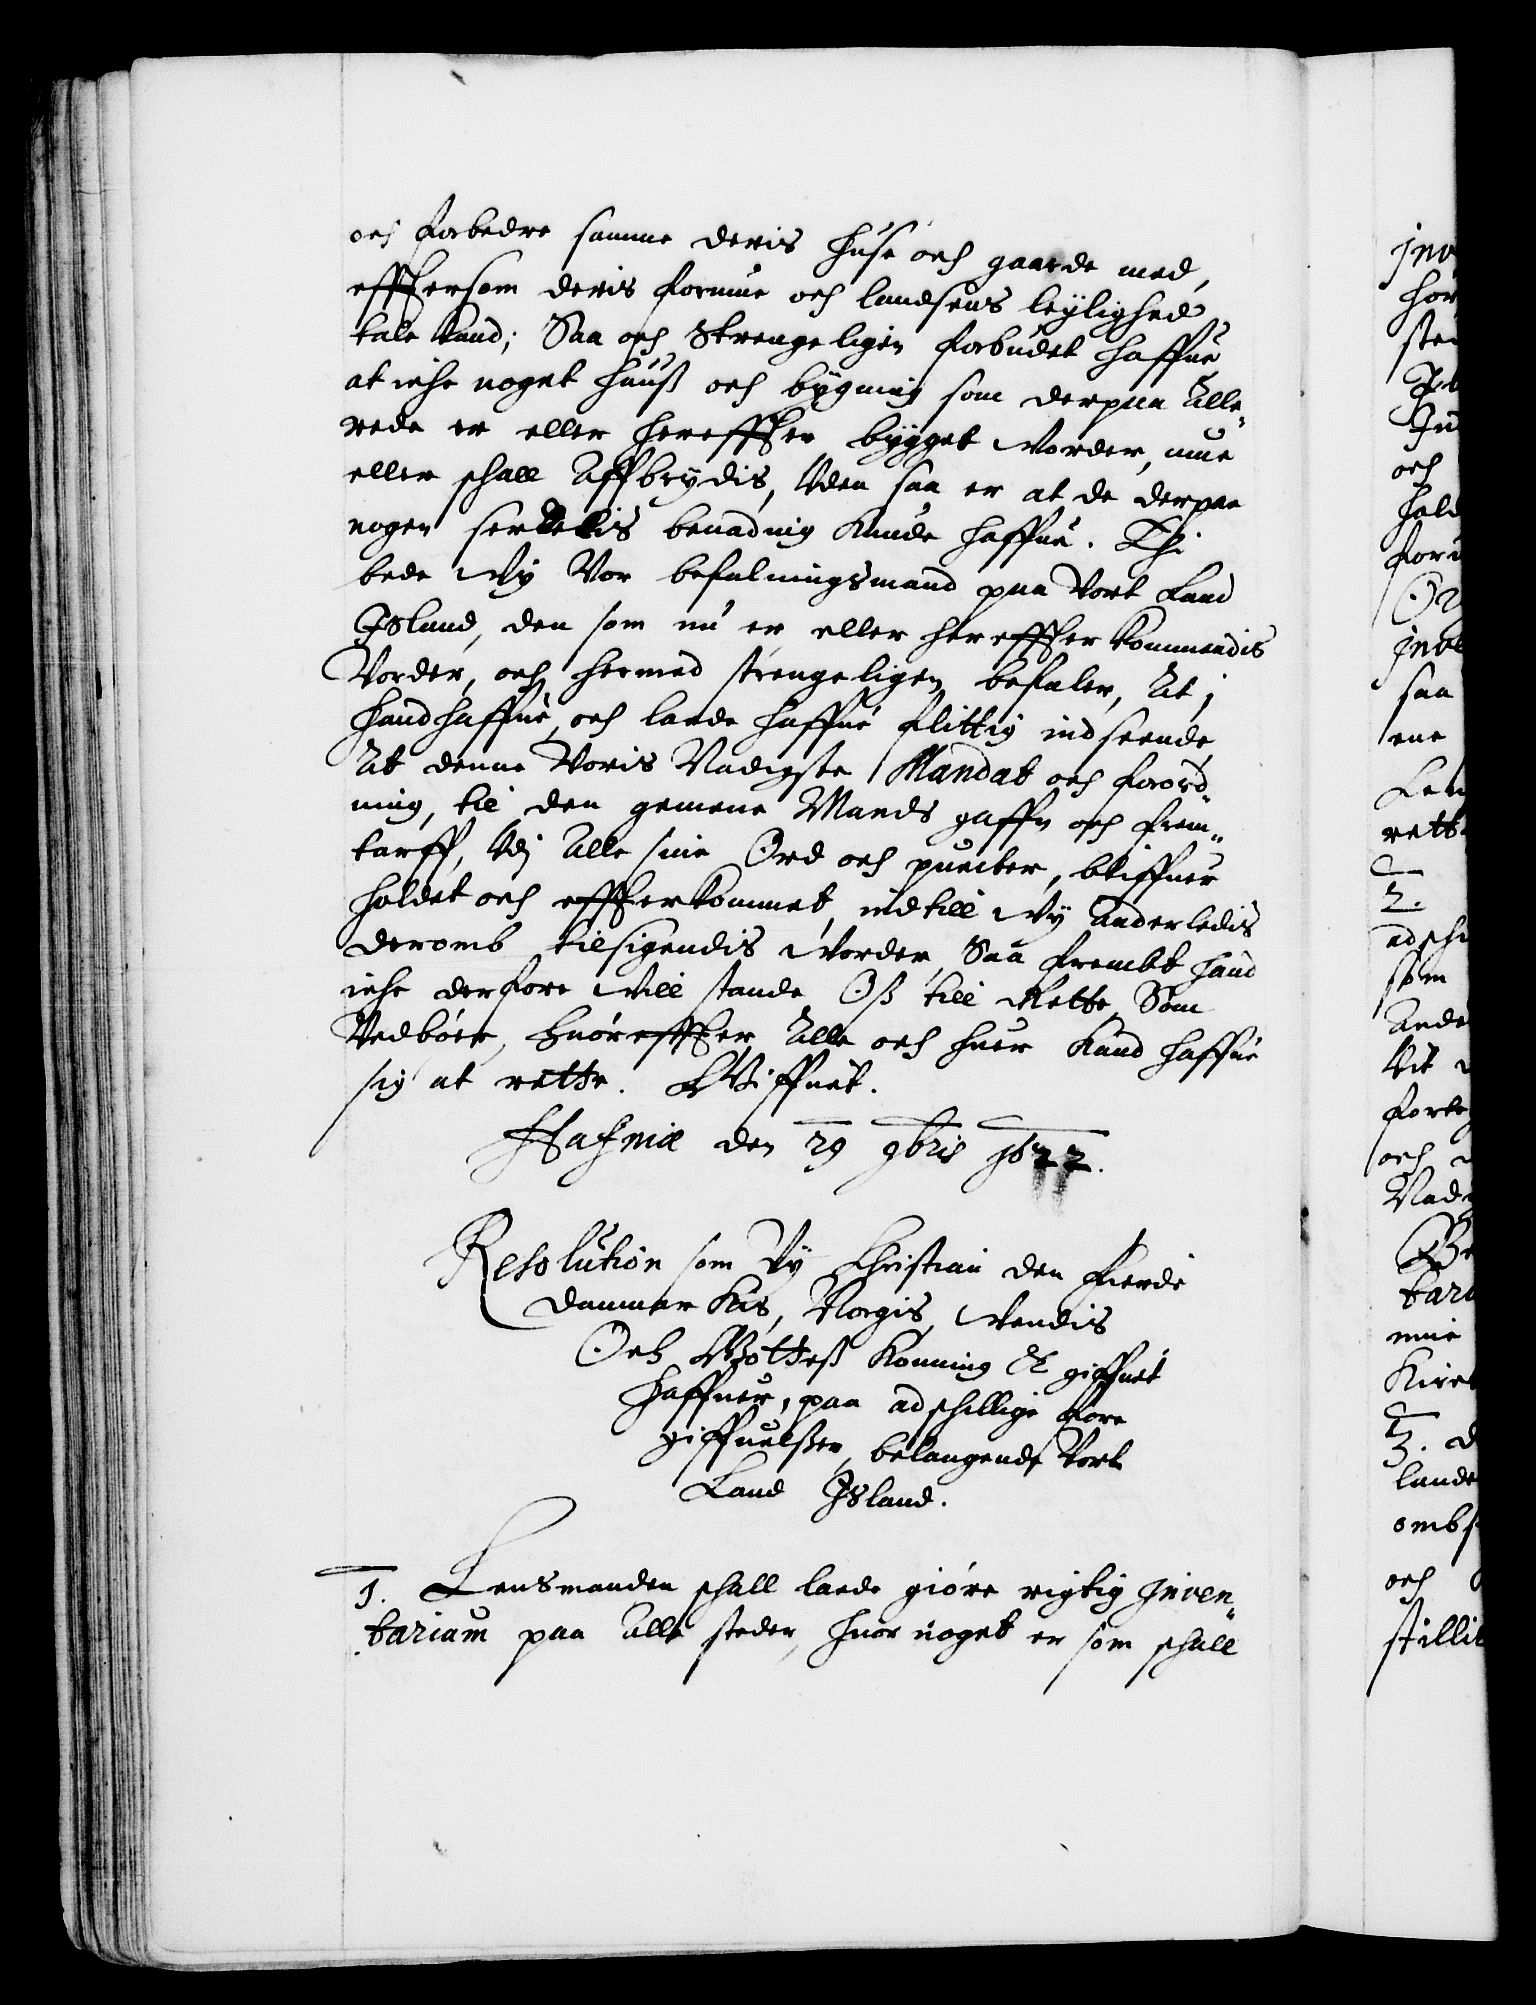 och forbedre samme deris huse och gaarde med,
effthersom deris formue och landsens leylighed
tale kand; Saa och Strengeligen forbudet haffue
at iche noget huuß och bÿgning som derpaa Alle„
rede er eller hereffther bÿgget vorder, mue
eller schall Affbrydis, Uden saa er at de derpaa
nogen serdelis benadnig kunde haffue. Thi
bede Wÿ Vor befalningsmand paa Vort Land
Jsland, den som nu er eller hereffther kommendis
Vorder, och hermed strengeligen befaler, At j
handhaffue, och lade haffue flittig indseende
At denne Voris Nadigste Mandat och forord„
ning, til den gemene Mands gaffn och frem„
tarff, Udj Alle sine Ord och puncter, bliffuer
holdet och efftherkommet, indtill Wÿ anderledis
deromb tilsigendis Vorder, Saa frembt hand
iche derfore vill stande Oß till Rette, Som
Vedbør, Huoreffther Alle och huer kand haffue
sig at rette. Giffuet.
Hafniæ den 29 9bris 1622.
Resolution som Vÿ Christian den fierde
Danmarkis, Norgis, Vendis
Och Gotteß Konning &c giffuet
haffuer, paa adschillige fore
giffuelßer, belangende Vort
Land Jsland.
1. Lensmanden schall lade giøre rigtig Jnven„
tarium paa Alle steder, huor noget er som schall
och
2.
och
3.
och